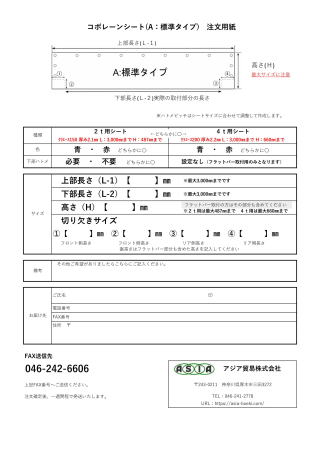 コボレーンシート(A：標準タイプ)　注文用紙
上部長さ(L-1)
高さ(H)
最大サイズに注意
A:標準タイプ
① ④
② ③
下部長さ(L-2)実際の取付部分の長さ
※ハトメピッチはシートサイズに合わせて調整して作成します。
種類　2ｔ用シート　←どちらかに〇→　4ｔ用シート
厚み2.1mm L：3,000mmまで H：487mmまで　厚み2.2mm L：3,000mmまで H：660mmまで
色　青　・　赤　どちらかに〇　青　・　赤　どちらかに〇
下部ハトメ　必要　・　不要　どちらかに〇　設定なし（フラットバー取付用のみとなります）
サイズ
上部長さ（L-1）【　　　】㎜　※最大3,000mmまでです
下部長さ（L-2）【　　　】㎜　※最大3,000mmまでです
高さ（H）【　　　】㎜　フラットバー取付の方はその部分も含めてください
※２ｔ用は最大487mmまで　４ｔ用は最大660mmまで
切り欠きサイズ
①【　　　】㎜　②【　　　】㎜　③【　　　】㎜　④【　　　】㎜
フロント側高さ　フロント側長さ　リア側長さ　リア側高さ
後高さはフラットバー部分も含めた高さを記入してください
備考　その他ご希望がありましたらこちらにご記入ください。
お届け先
ご氏名　印
電話番号
FAX番号
住所　〒
FAX送信先
046-242-6606
上記FAX番号へご送信ください。
注文確定後、一週間程で発送いたします。
ASIA　アジア貿易株式会社
〒243-0211　神奈川県厚木市三田3272
TEL：046-241-2778
URL：https://asia-boeki.com/